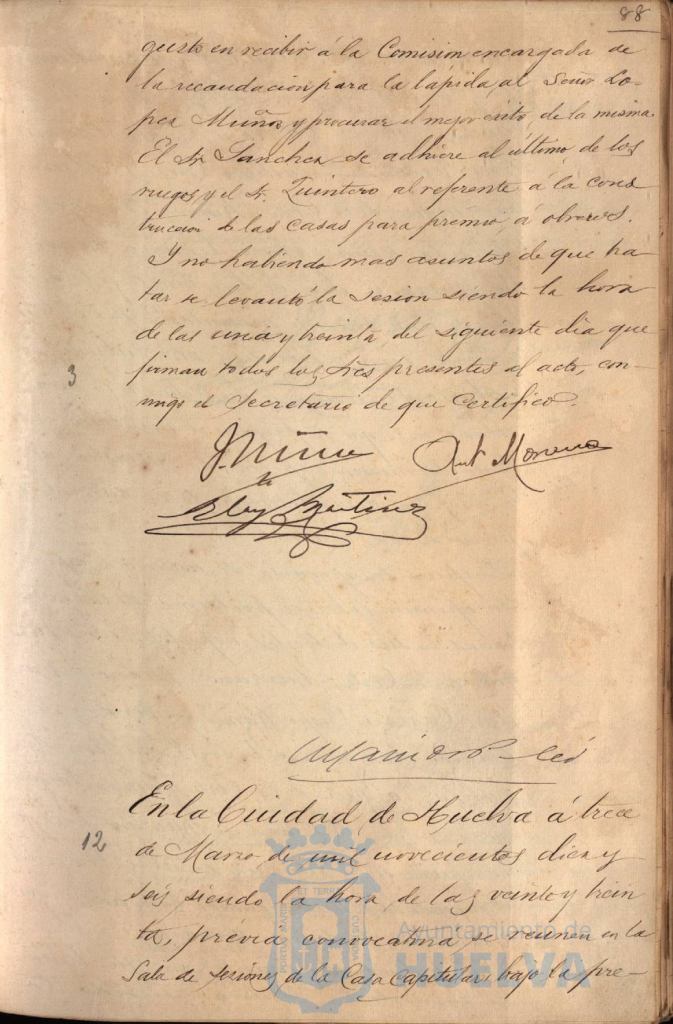 88
gusto en recibir á la Comision encargada de
la recaudacion para la lápida, al Señor Lo-
pez Muñoz y procurar el mejor éxito de la misma.
El Sr. Sanchez se adhiere al último de los
ruegos y el Sr. Quintero al referente á la cons
truccion de las casas para premio, á obreros.
Y no habiendo mas asuntos de que tra
tar se levantó la sesion siendo la hora
de las una y treinta, del siguiente dia que
3
firman todos los Sres presentes al acto, con-
migo el Secretario de que Certifico.
Ant Moreno
En la Ciudad de Huelva á trece
12
de Marzo de mil novecientos diez y
seis siendo la hora de las veinte y trein
ta, prévia convocatoria se reunen en la
Sala de Sesiones de la Casa Capitular, bajo la pre-
Ayuntamiento de
HUELVA